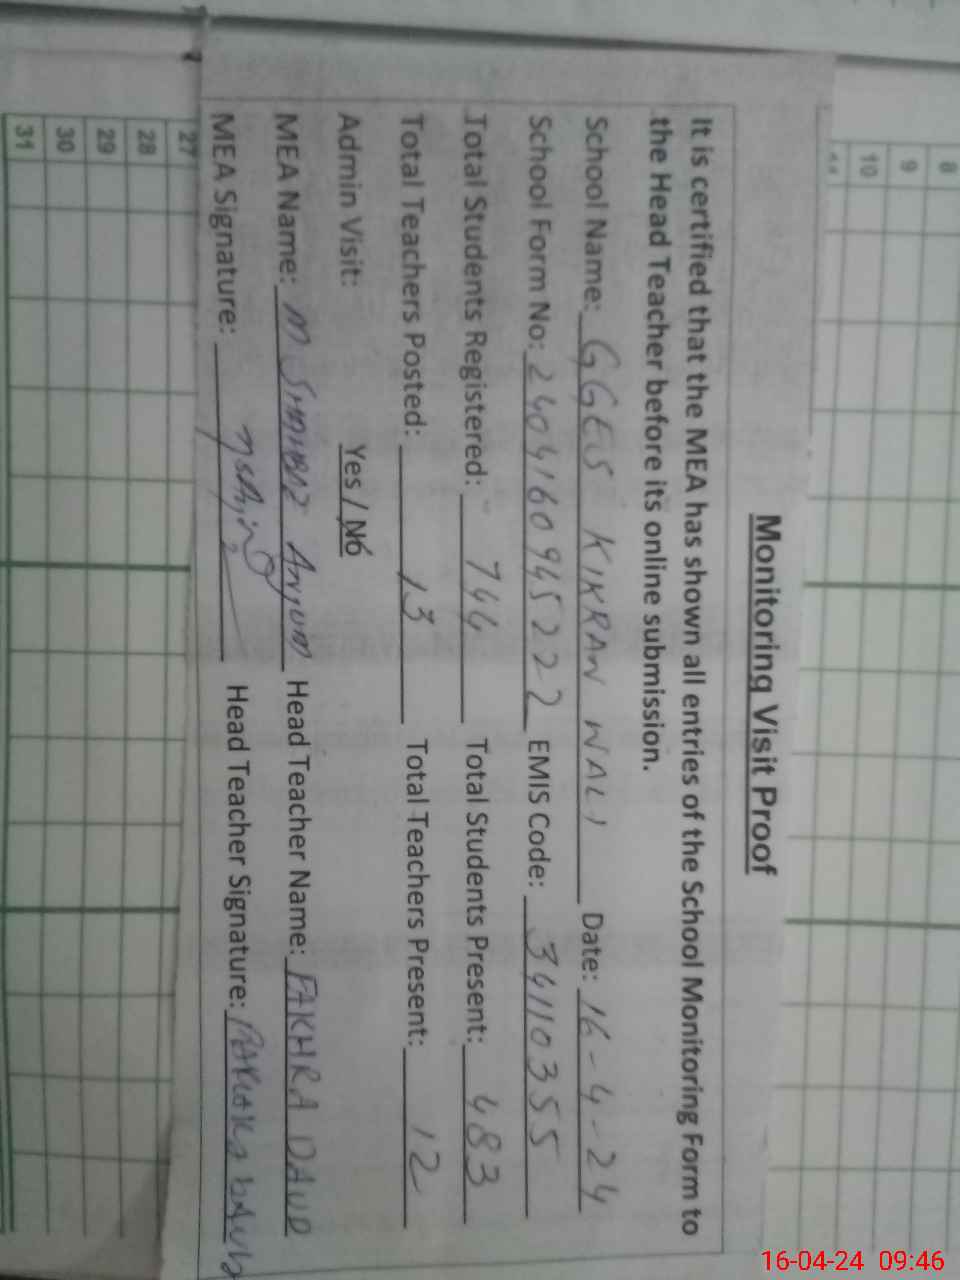 Monitoring Visit Proof
It is certified that the MEA has shown all entries of the School Monitoring Form to
the Head Teacher before its online submission.
School Name: GGES KIKRAN WALI Date: 16-4-24
School Form No: 2404160945222 EMIS Code: 34110355
Total Students Registered: 744 Total Students Present: 483
Total Teachers Posted: 13 Total Teachers Present: 12
Admin Visit: Yes / No
MEA Name: M SHAHBAZ Anjum Head Teacher Name: FAKHRA DAUD
MEA Signature: Head Teacher Signature:
8
9
10
27
28
29
30
31
16-04-24 09:46